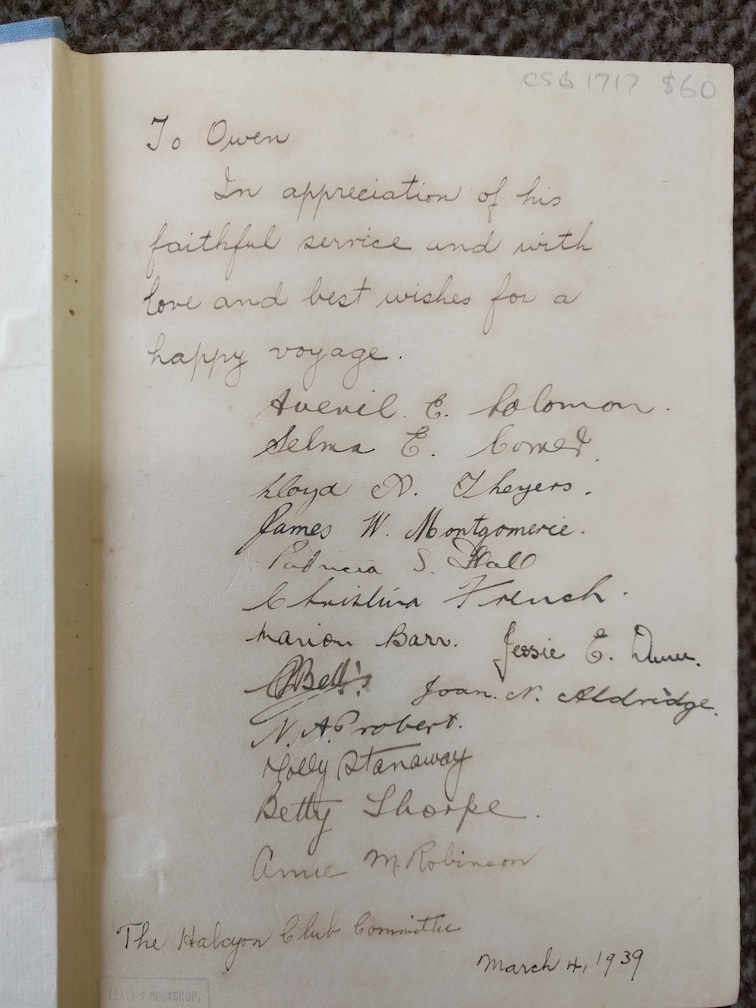 CSB 1717 $60
To Owen
In appreciation of his
faithful service and with
love and best wishes for a
happy voyage.
Averil E. Solomon.
Selma E. Comer.
Lloyd N. Theyers.
James W. Montgomerie.
Patricia S. Hall
Christina French.
Marion Barr. Jessie E. Dunn.
Joan. N. Aldridge.
N. A. Probert.
Molly Stanaway
Betty Thorpe.
Annie M. Robinson
The Halcyon Club Committee
March 4, 1939
BOOKSHOP,